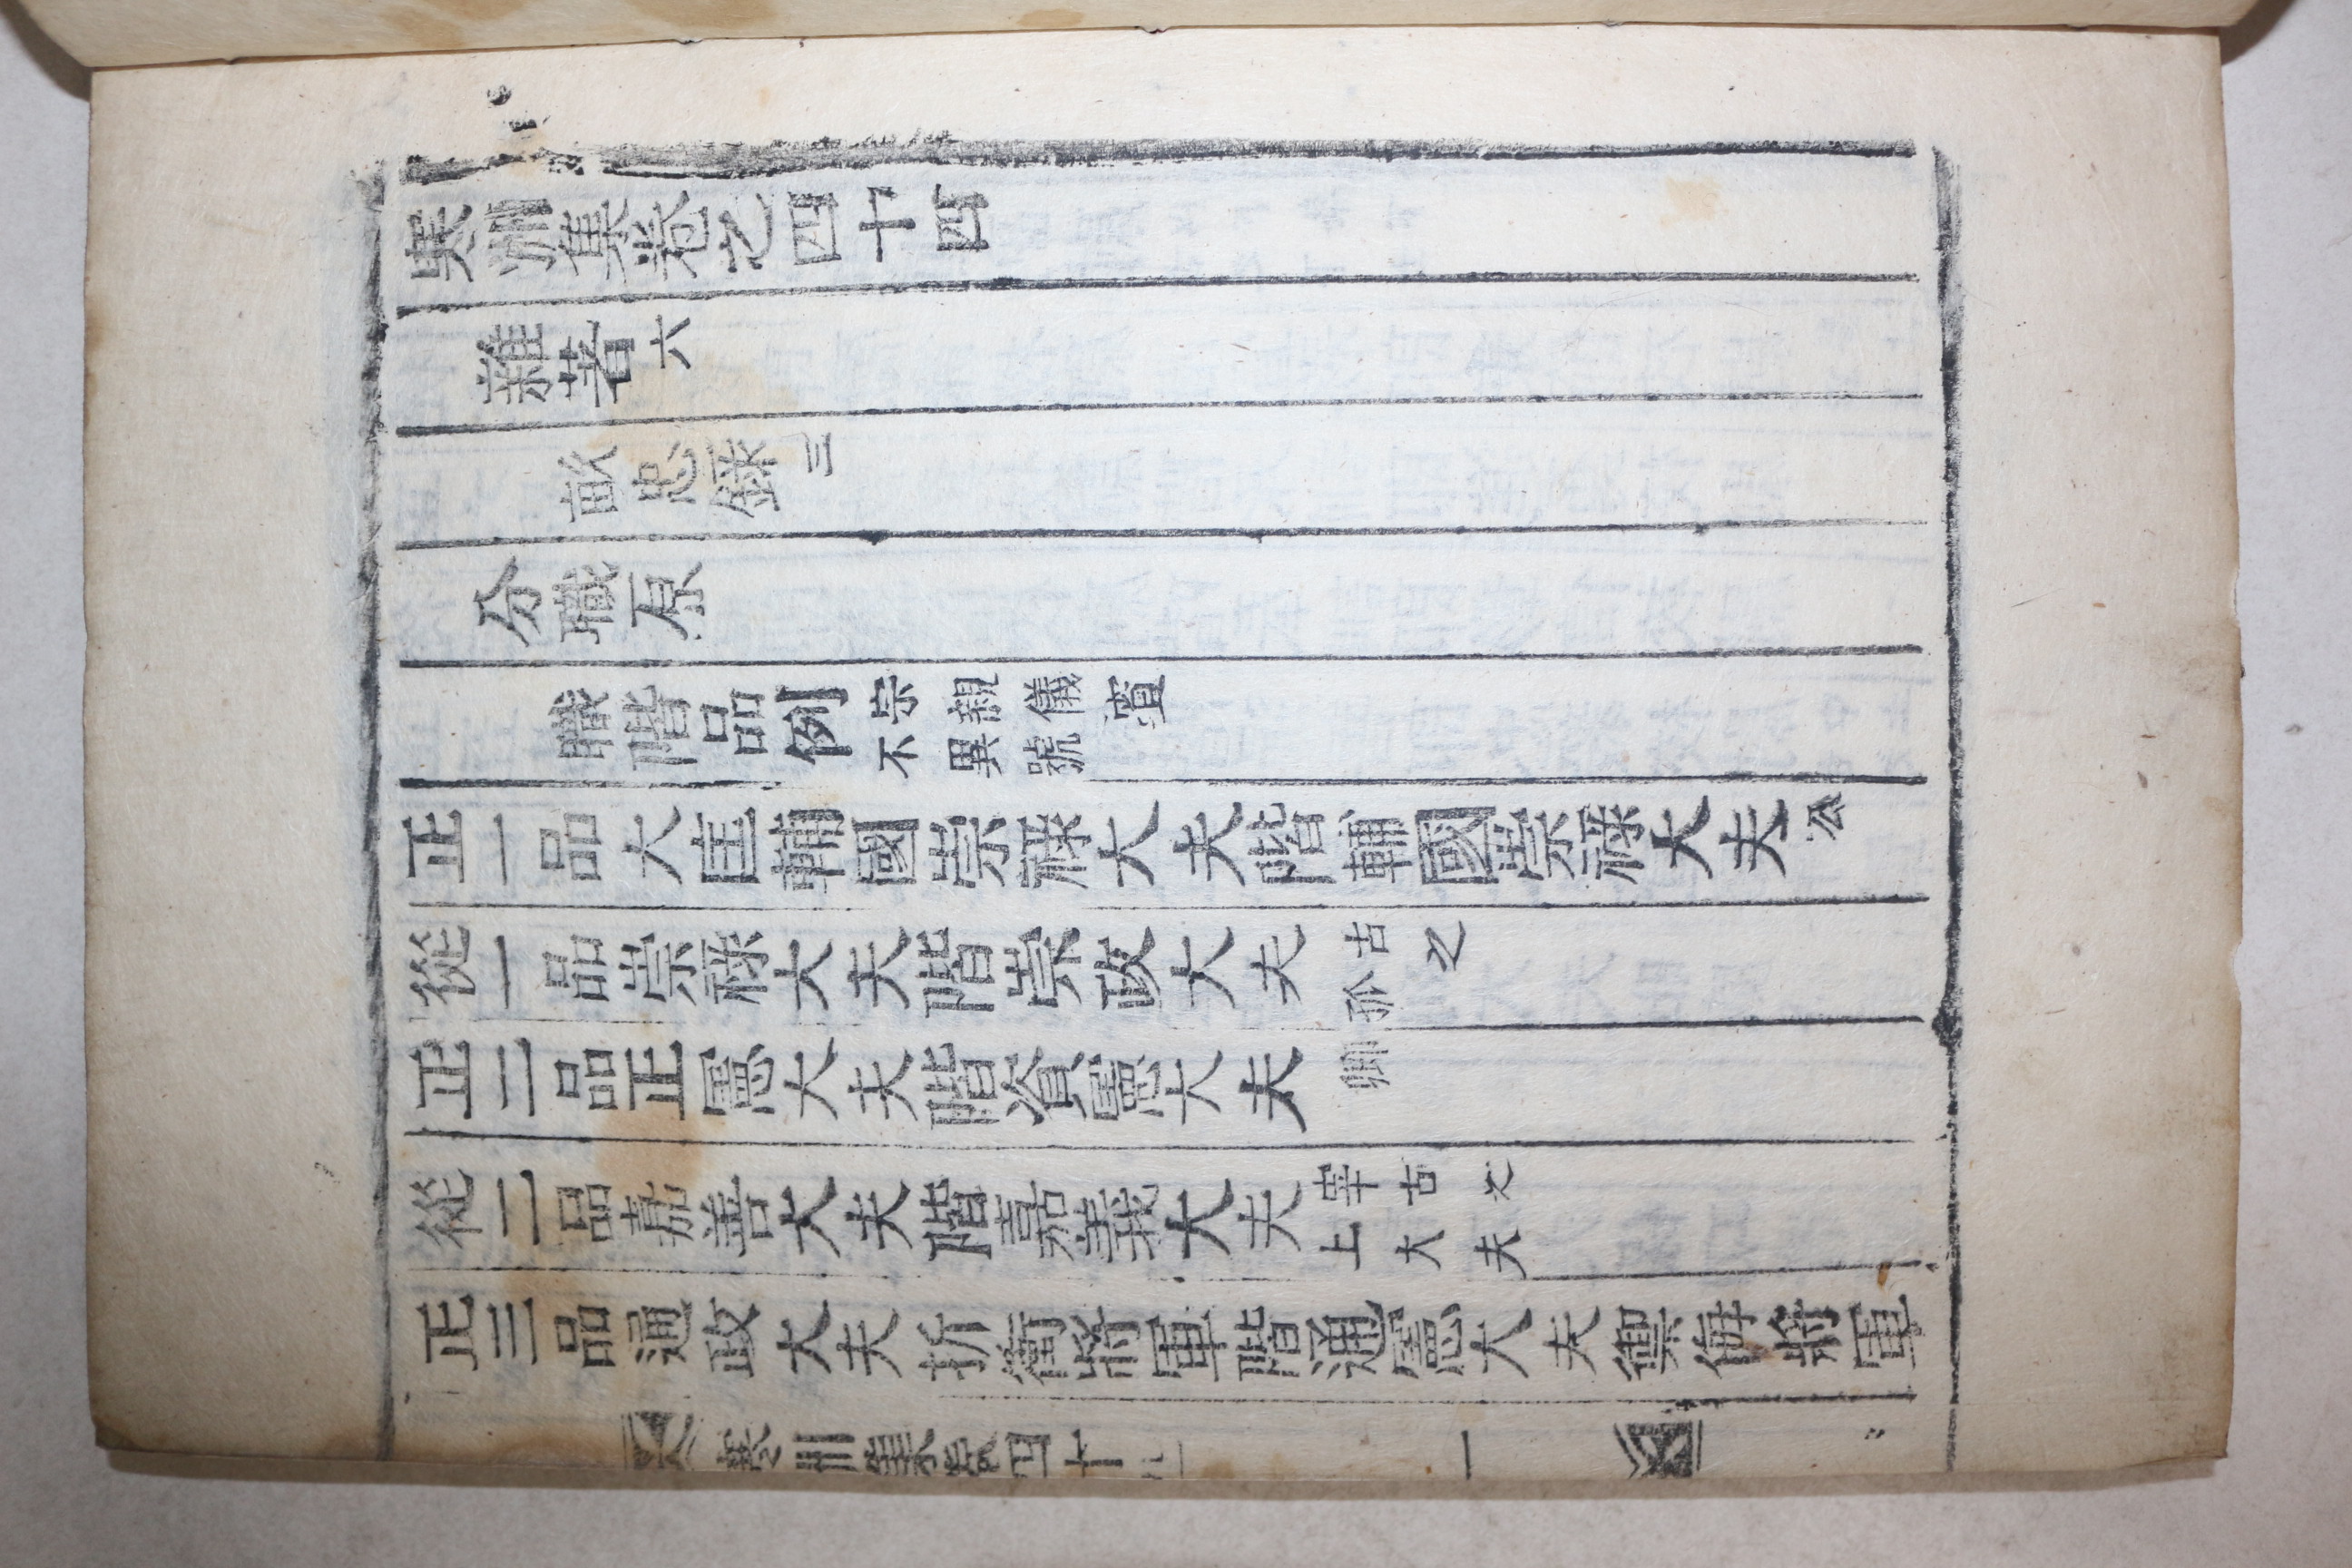 寒洲集卷之四十四
雜著六
畝忠錄三
分職原
職階品例宗親儀賓不異號
正一品大匡輔國崇祿大夫階輔國崇祿大夫公
從一品崇祿大夫階崇政大夫古之孤
正二品正憲大夫階資憲大夫卿
從二品嘉善大夫階嘉義大夫宰古之上大夫
正三品通政大夫折衝將軍階通憲大夫禦侮將軍
寒洲集卷四十 一